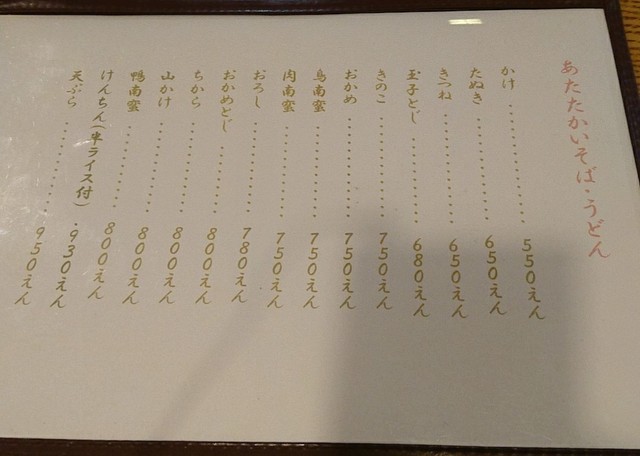 あたたかいそば・うどん
かけ..............550えん
たぬき..............650えん
きつね..............650えん
玉子とじ..............680えん
きのこ..............750えん
おかめ..............750えん
鳥南蛮..............750えん
肉南蛮..............750えん
おろし..............780えん
おかめとじ..............800えん
ちから..............800えん
山かけ..............800えん
鴨南蛮..............800えん
けんちん(半ライス付)..930えん
天ぷら..............950えん